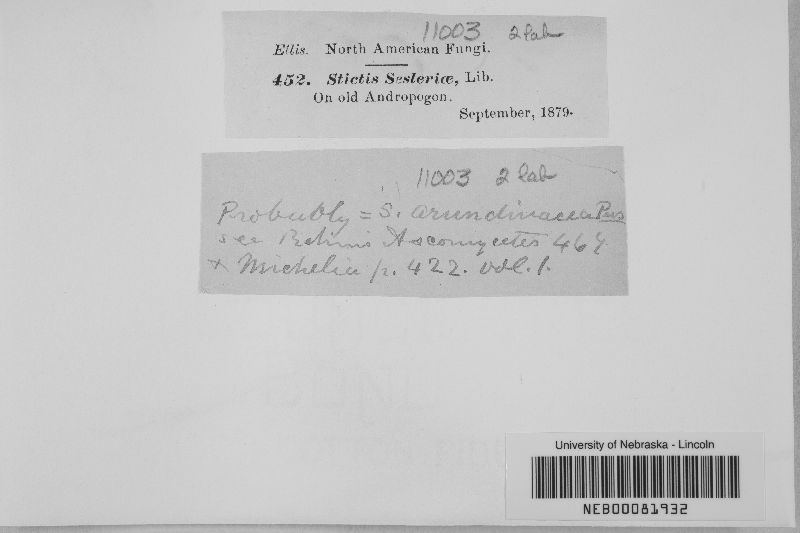 11003 2 lab
Ellis. North American Fungi.
452. Stictis Sesleriæ, Lib.
On old Andropogon.
September, 1879.
11003 2 lab
Probably = S. arundinacea Pers
see Rehm's Ascomycetes 464
+ Michelia p. 422. vol. 1.
University of Nebraska - Lincoln
NEB00081932